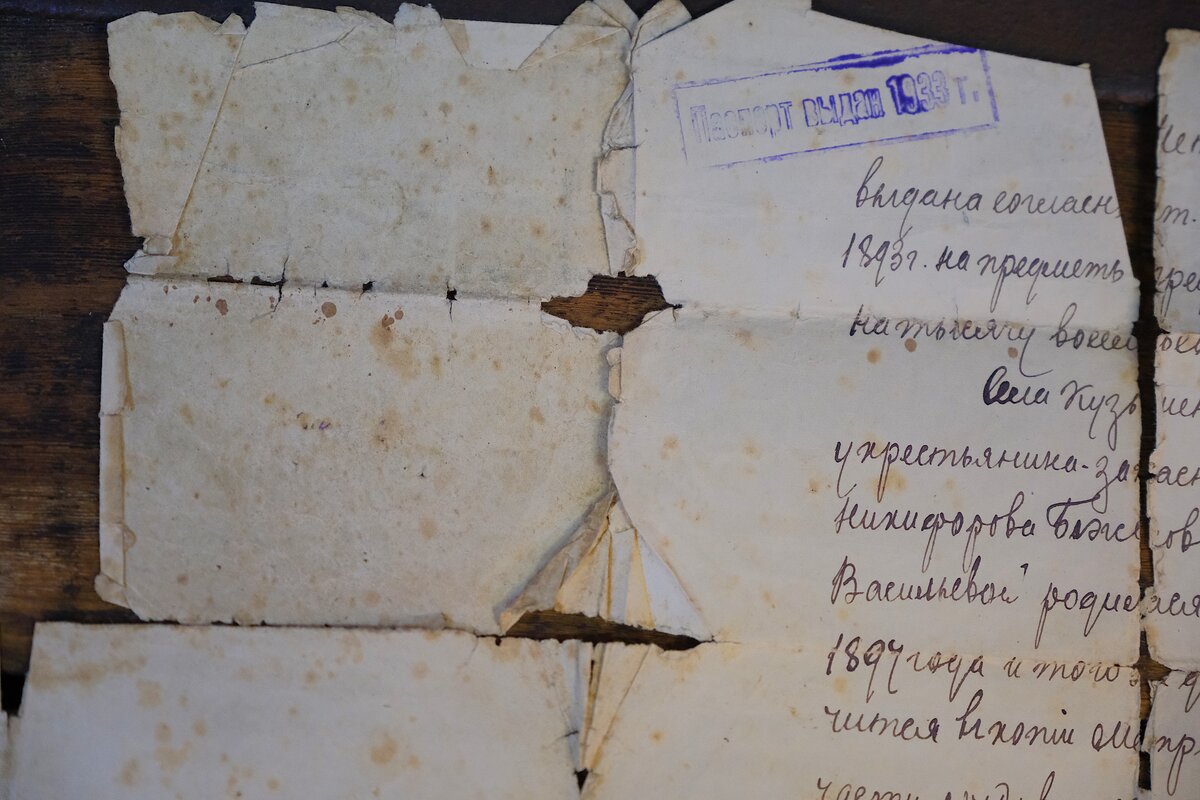 Паспорт выдан 1933 г.
выдана согласн т
1893г. на предметъ пре
на тысячу восем
Села Кузь
у крестьянина-запасн
Никифорова
Васильевой родился
1897 года и того д
читея въ копіи пр
части